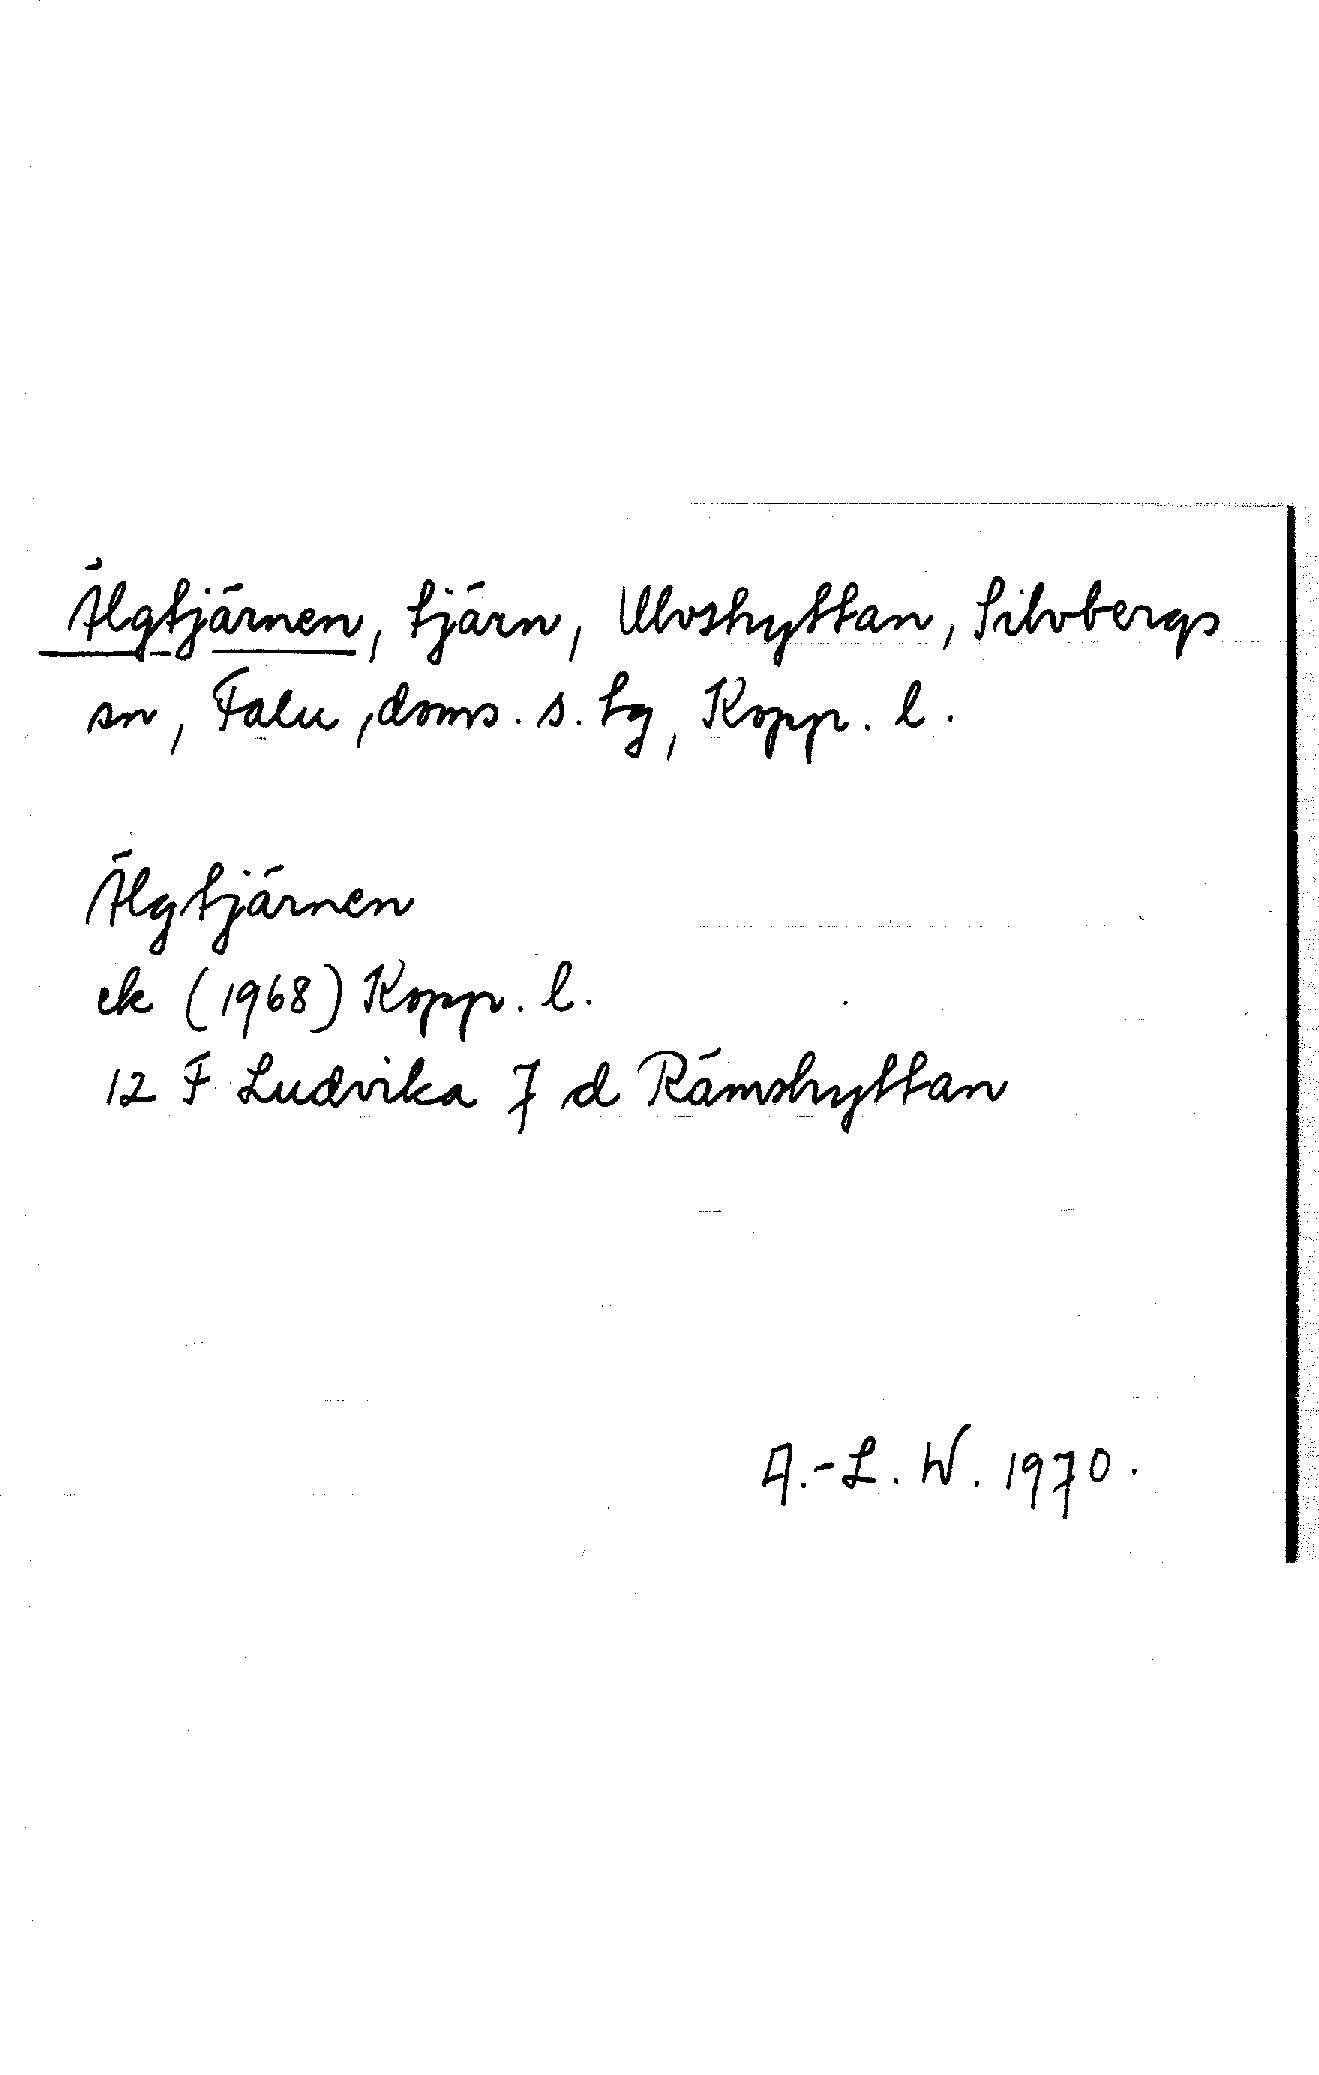 Älgtjärnen, tjärn, Ulvshyttan, Silvbergs
sn, Falu, doms. s. tg, Kopp. l.
Älgtjärnen
ek (1968) Kopp. l.
12 F Ludvika 7 d Rämshyttan
A.-L. W. 1970.